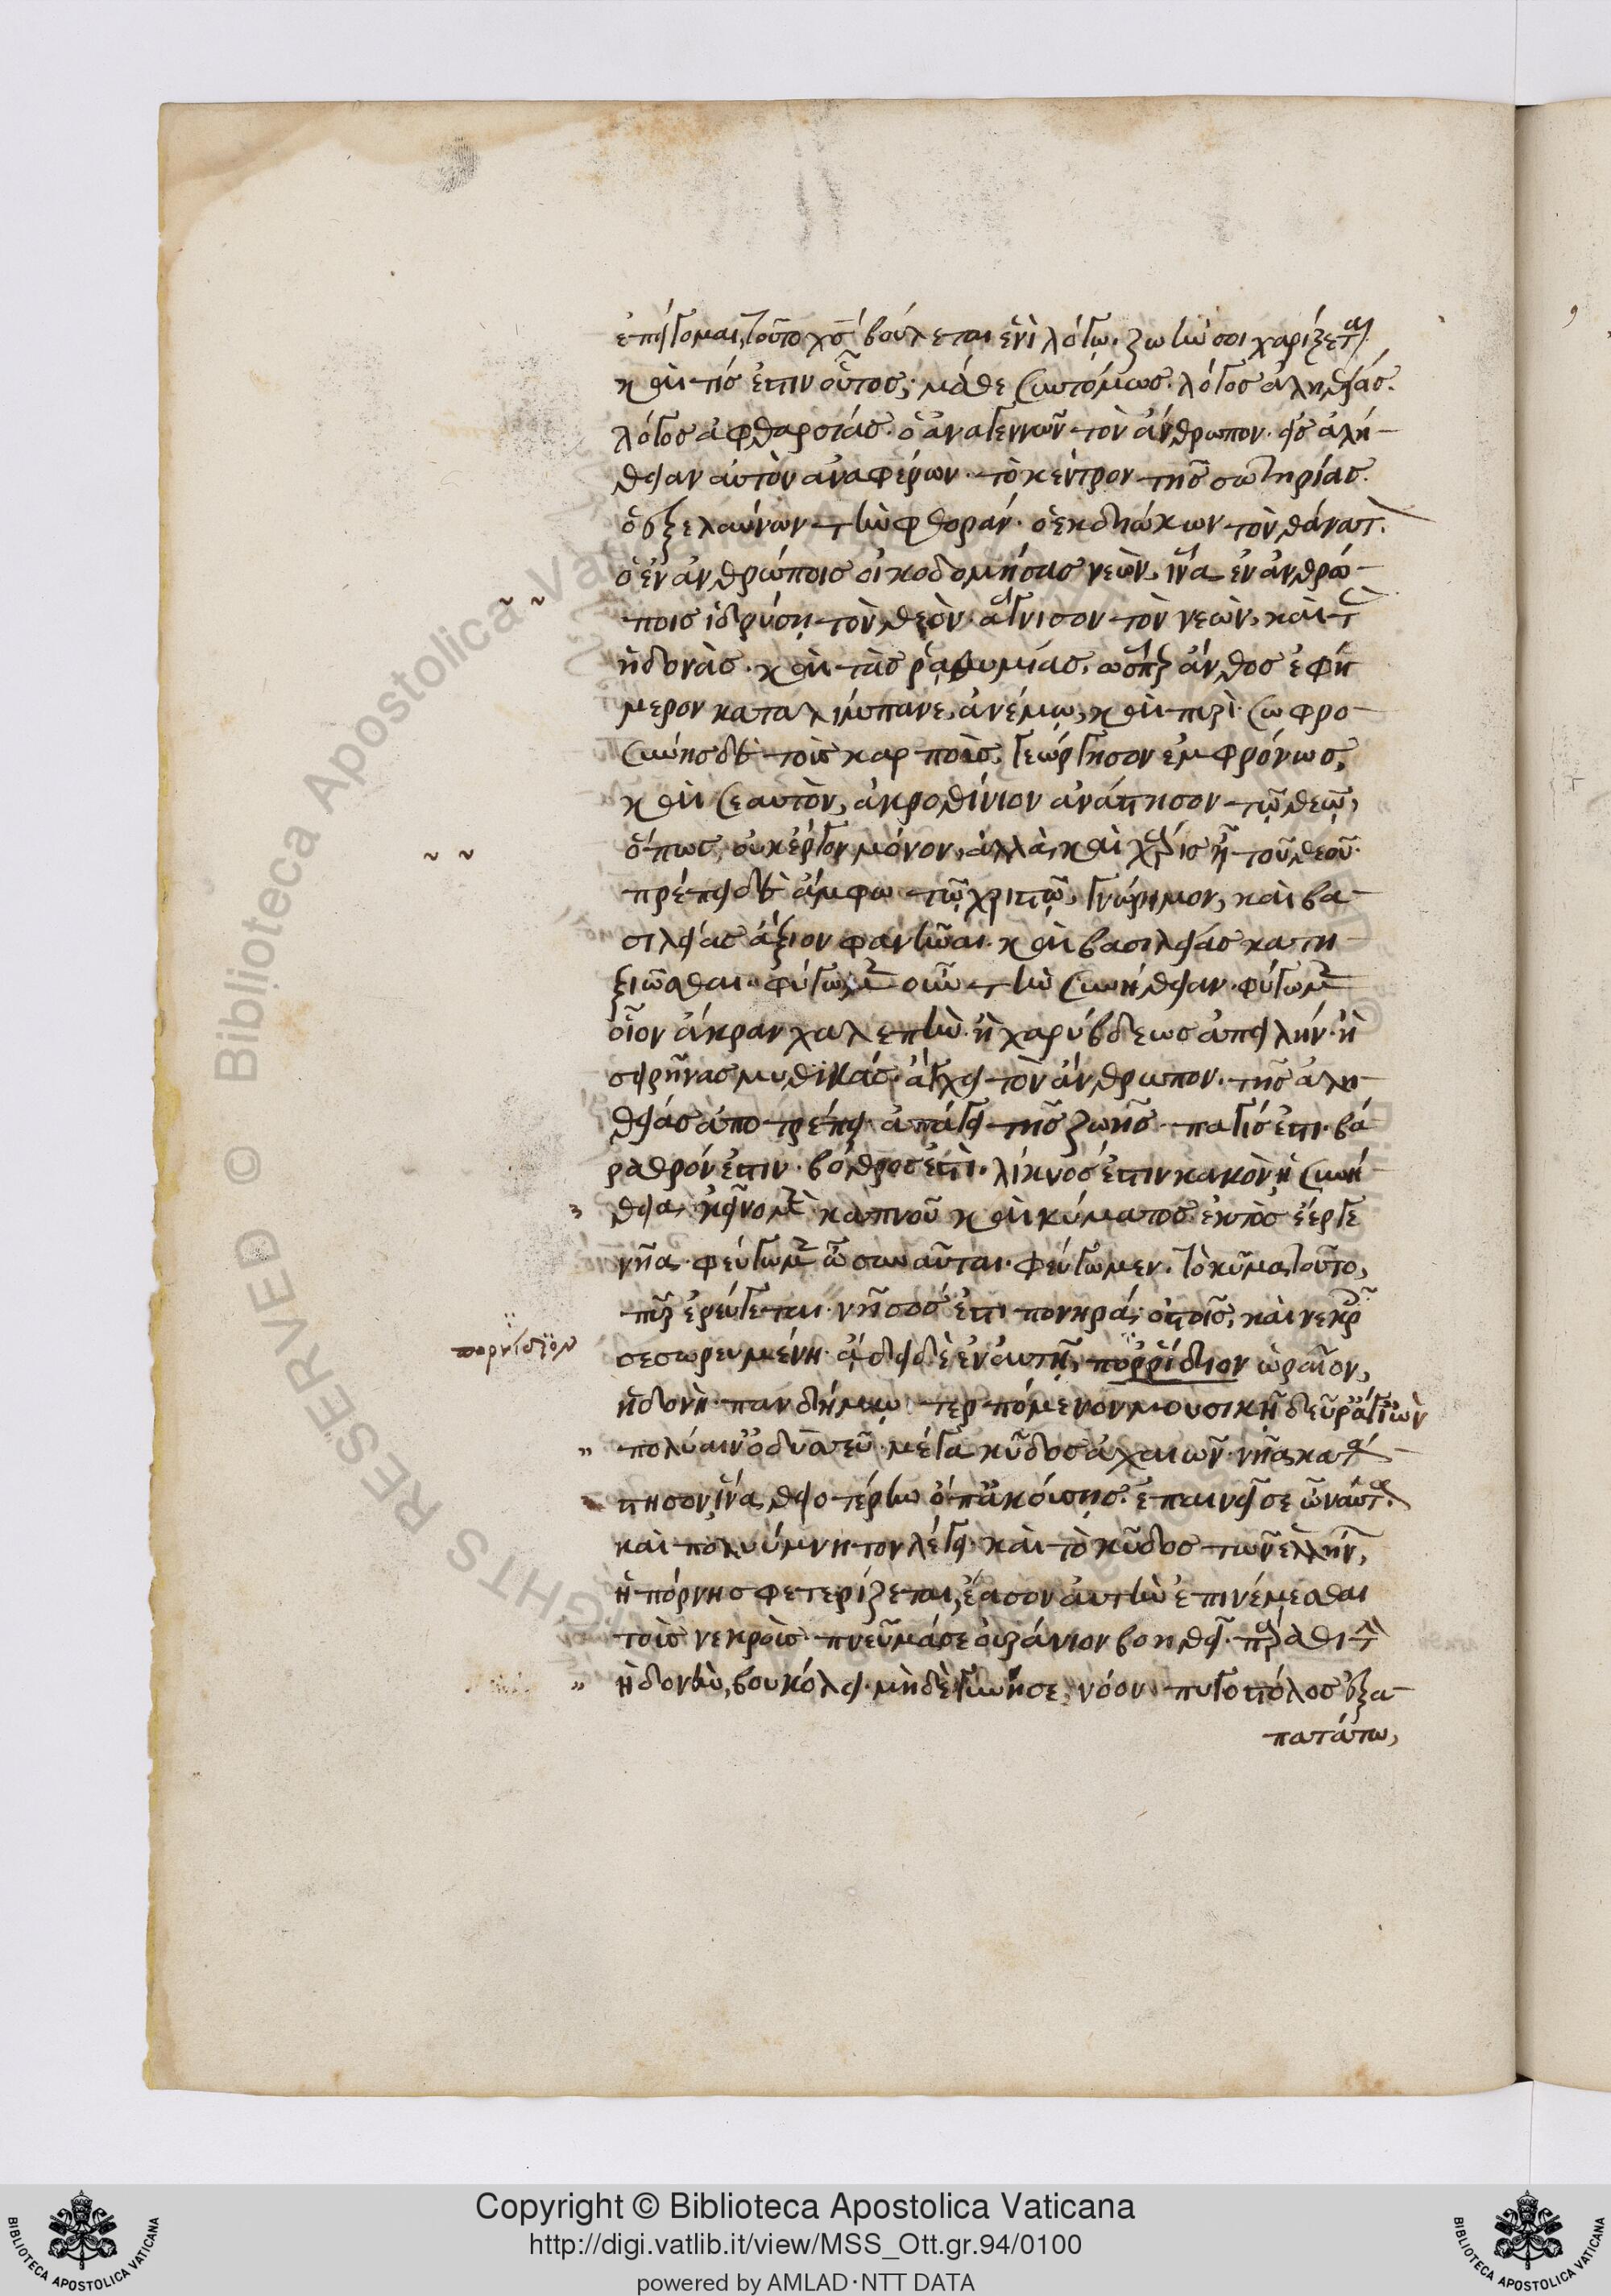 ἐπείγομαι, τοῦτο χς βούλεται ἑνὶ λόγῳ. ζωὴν σοι χαρίζεται.
καὶ τίς ἐστιν οὗτος; μάθε συντόμως. λόγος ἀληθείας.
λόγος ἀφθαρσίας. ὁ ἀναγεννῶν τὸν ἄνθρωπον. εἰς ἀλή-
θειαν αὐτὸν ἀναφέρων. τὸ κέντρον τῆς σωτηρίας.
ὁ ἐξελαύνων τὴν φθοράν. ὁ ἐκδιώκων τὸν θάνατ.
ὁ ἐν ἀνθρώποις οἰκοδομήσας νεών, ἵνα ἐν ἀνθρώ-
ποις ἱδρύσῃ τὸν θεόν. ἅγνισον τὸν νεών, καὶ τ
ἡδονὰς. καὶ τὰς ῥαθυμίας, ὥσπερ ἄνθος ἐφή
μερον καταλίμπανε, ἀνέμῳ, καὶ πυρί. σωφρο-
σύνης δὲ τοὶς καρποὶς, γεώργησον ἐμφρόνως,
καὶ σεαυτὸν, ἀκροθίνιον ἀνάστησον τῷ θεῷ,
ὅπως, οὐκ ἔργον μόνον, ἀλλὰ, καὶ χάρις ᾖ τοῦ θεοῦ.
πρέπει δὲ ἄμφω τῷ χριστῷ, γνώριμον, καὶ βα-
σιλείας ἄξιον φανῆναι. καὶ βασιλείας κατη-
ξιῶσθαι. φύγωμεν οὖν τὴν συνήθειαν. φύγωμεν
οἷον ἄκραν χαλεπὴν. ἢ χαρύβδεως ἀπειλήν. ἢ
σειρῆνας μυθικάς. ἄγχει τὸν ἄνθρωπον. τῆς ἀλη-
θείας ἀποτρέπει. ἀπάγει τῆς ζωῆς. παγίς ἐστι. βά
ραθρόν ἐστιν. βόθρος ἐστὶ. λίχνος ἐστιν κακὸν ἡ συνή
θεια, κείνου μὲν καπνοῦ καὶ κύματος ἐκτὸς ἔεργε
νῆα. φεύγωμεν ὦ συνναῦται. φεύγωμεν. τὸ κῦμα τοῦτο,
πῦρ ἐρεύγεται. νῆσός ἐστι πονηρά. ὀστοῖς, καὶ νεκρ
σεσωρευμένη. ᾄδει δὲ ἐν αὐτῇ, πορρίδιον ὡραῖον,
πορνίδιον
ἡδονὴ. πανδήμῳ τερπόμενον μουσικῇ δεῦρ' ἄγ' ἰὼν
πολύαιν' ὀδυσεῦ. μέγα κῦδος ἀχαιῶν. νῆα κατά
στησον, ἵνα θειοτέρην ὄπ' ἀκούσῃς. ἐπαινεῖ σε ὦ ναῦτα.
καὶ πολυύμνητον λέγει. καὶ τὸ κῦδος τῶν ἑλλήν,
ἡ πόρνη σφετερίζεται, ἔασον αὐτὴν ἐπινέμεσθαι
τοὶς νεκροὶς. πνεῦμά σε οὐράνιον βοηθεῖ. πάριθι τ
ἡδονὴν, βουκόλει. μὴ δὲ γυνή σε νόον πυγοστόλος ἐξα-
πατάτω,
Copyright © Biblioteca Apostolica Vaticana
http://digi.vatlib.it/view/MSS_Ott.gr.94/0100
powered by AMLAD·NTT DATA
BIBLIOTECA APOSTOLICA VATICANA
BIBLIOTECA APOSTOLICA VATICANA
© Biblioteca Apostolica Vaticana